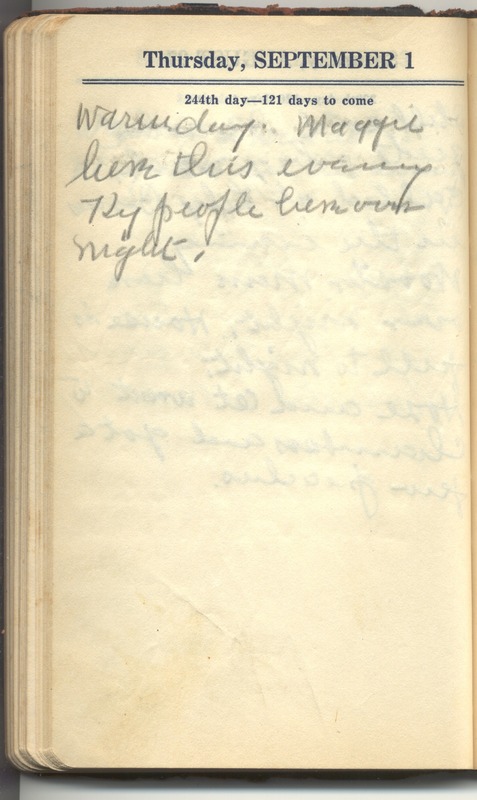 Thursday, SEPTEMBER 1
244th day—121 days to come
Warm day. Maggie
here this evening
Ky people here over
night.